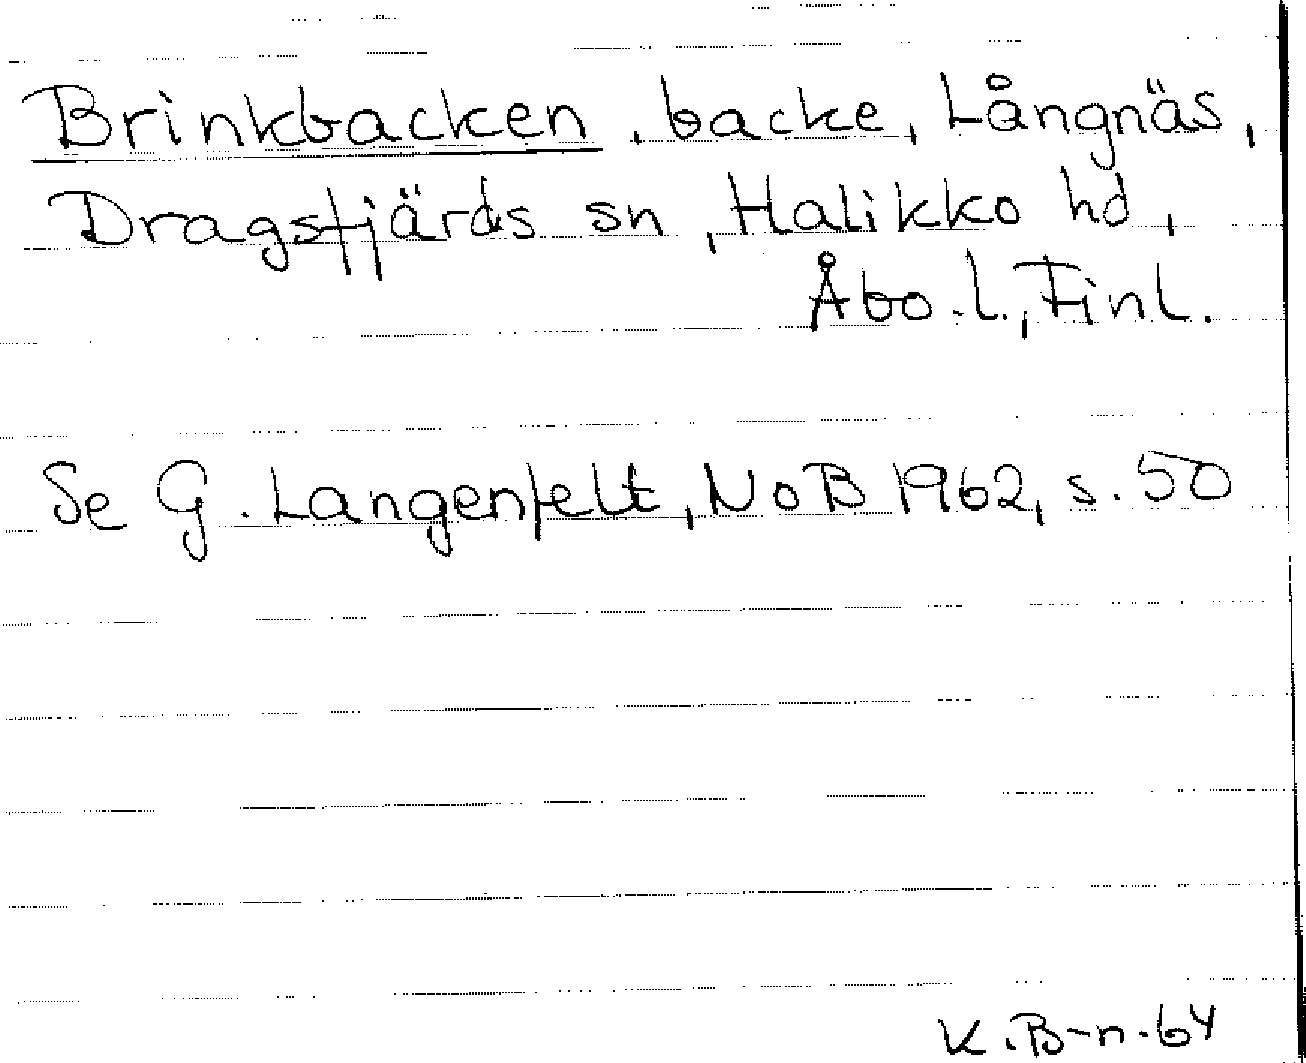 Brinkbacken, backe, Långnäs,
Dragsfjärds sn, Halikko hd,
Åbo. l., Finl.
Se G. Langenfelt, NoB 1962, s. 50
K. B-n. 64